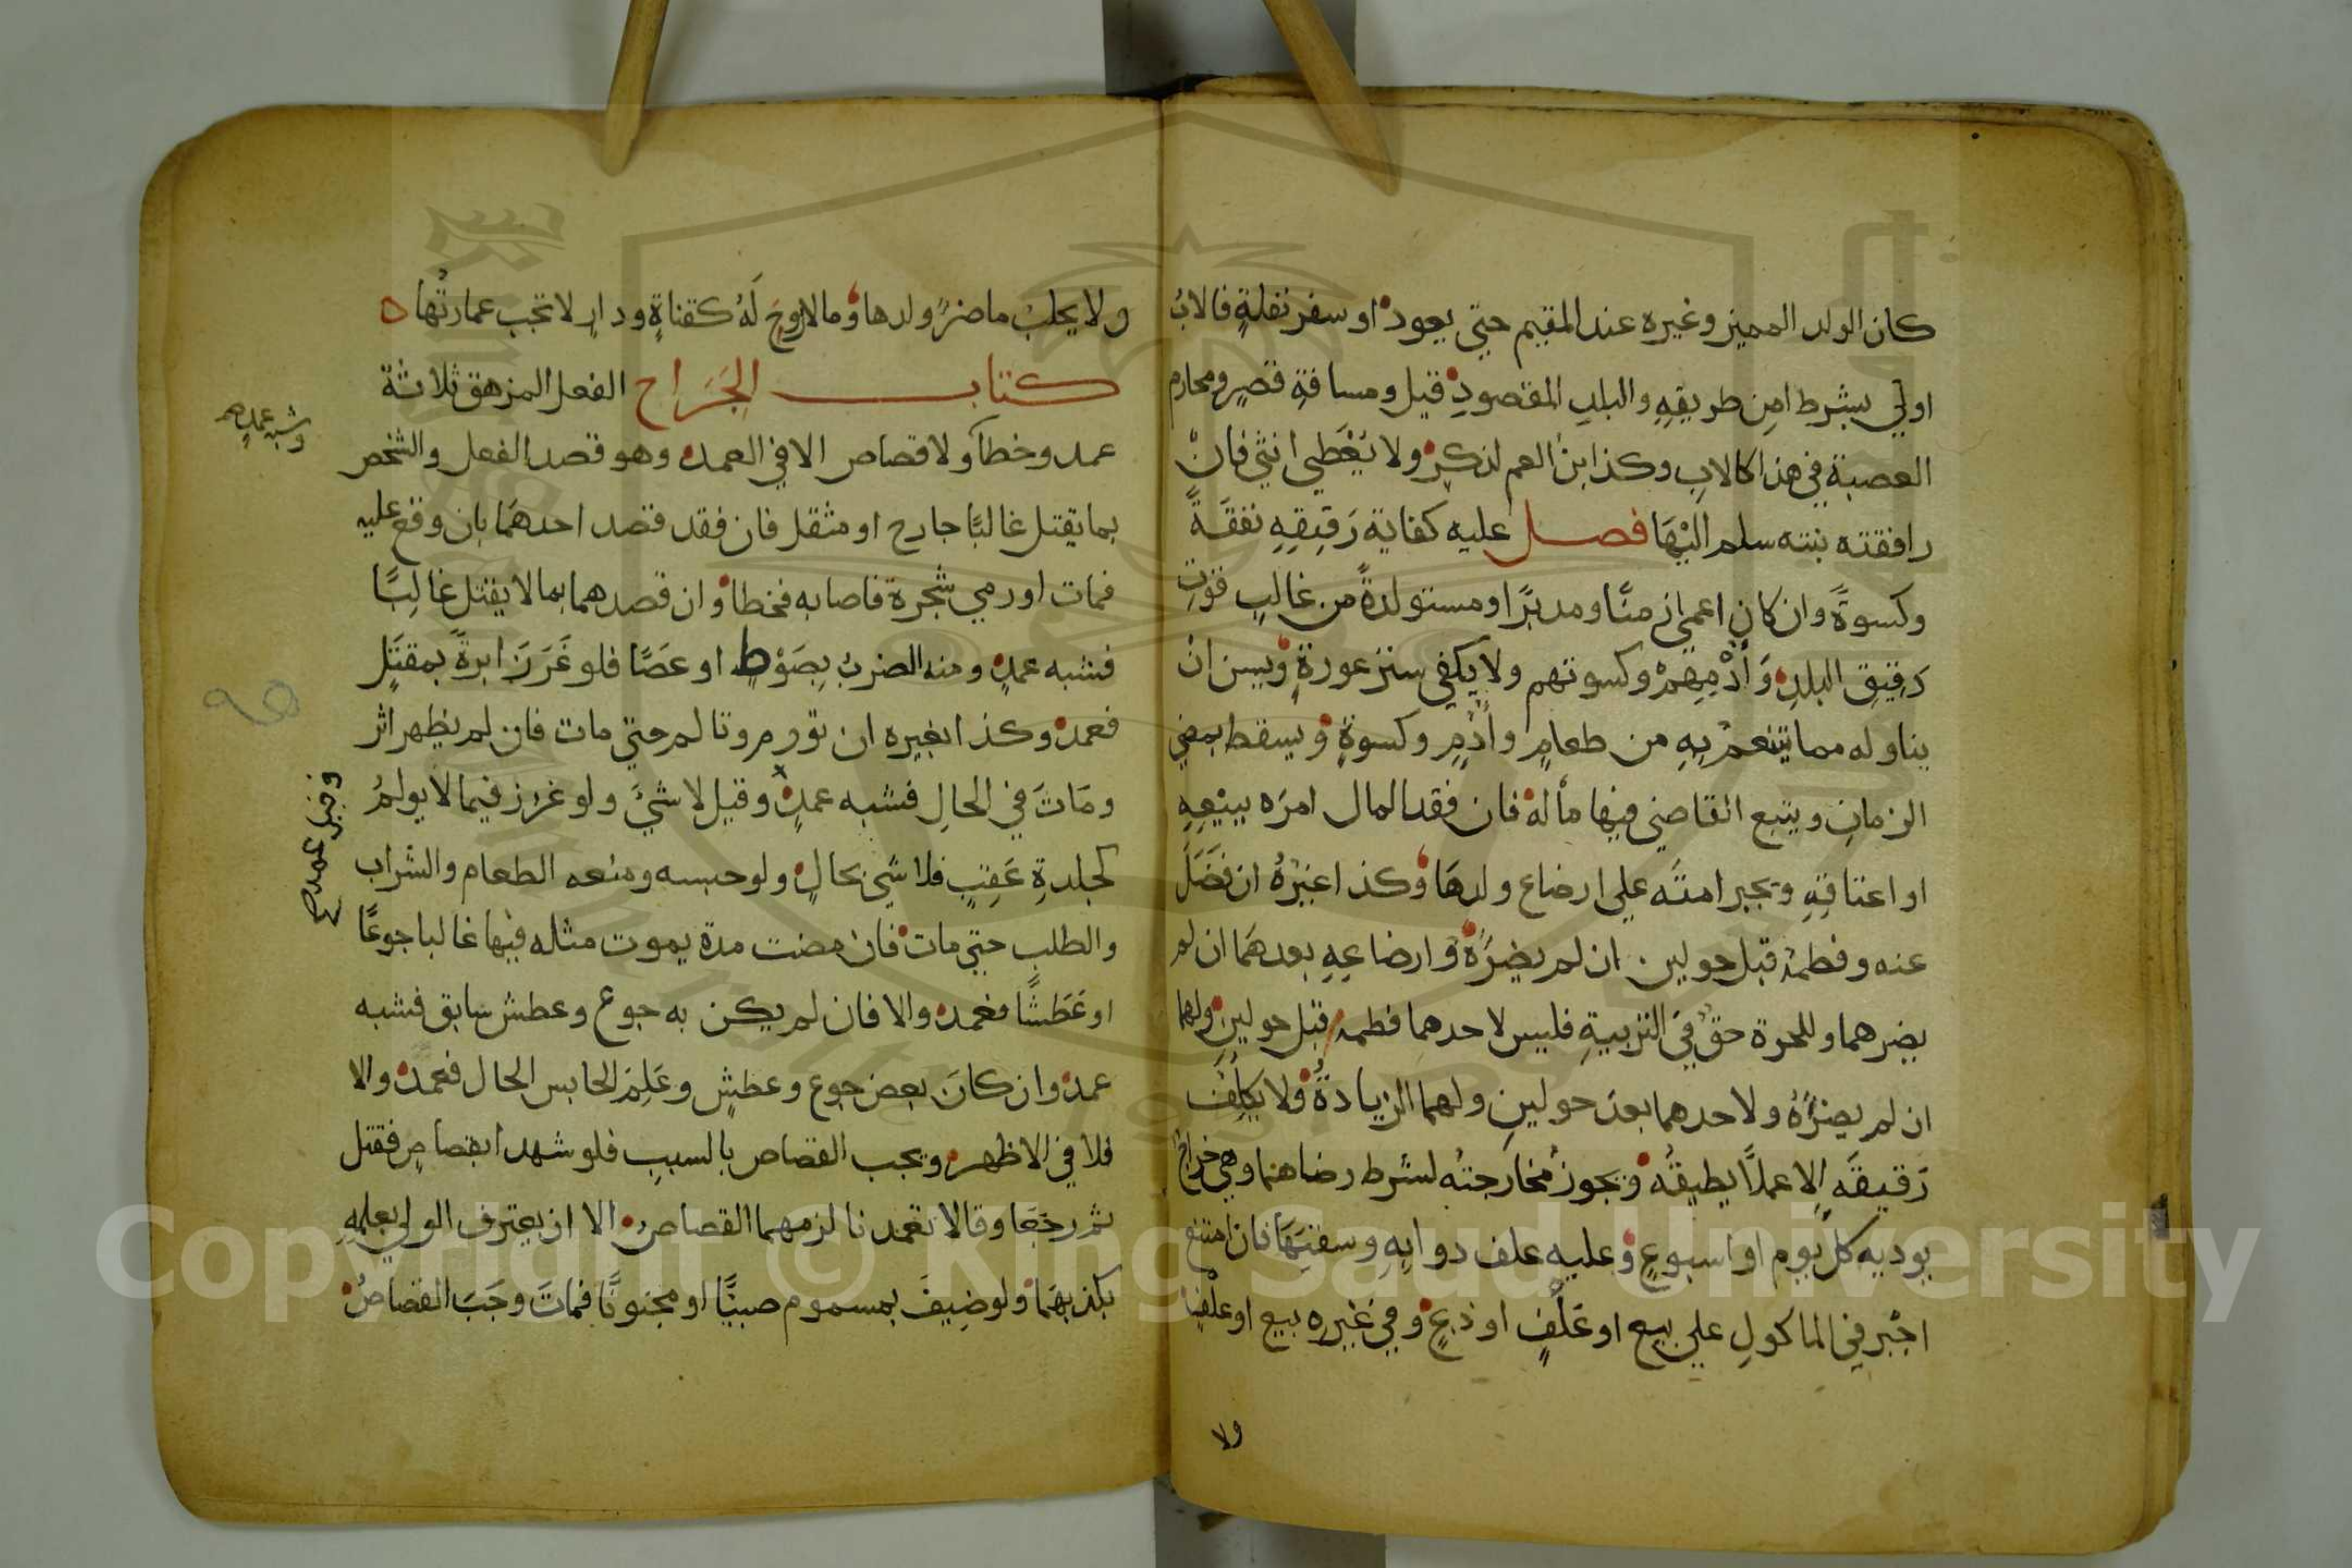 كان الولد المميز وغيره عند المقيم حتي يعود او سفر نقلةٍ فالابُ
اولي بشرط امنِ طريقِهِ والبلدِ المقصودِ قيل ومسافةِ قصرٍ ومحارم
العصبة في هذا كالابِ وكذا ابن العم لذكرٍ ولا يُعْطي انثي فانْ
رافقته بنته سلم اليْهَا فصل عليه كفاية رَقيقِهِ نفقَةً
وكسوةً وان كان اعمي زمنًا ومدبرًا ومستولدةً من غالبِ قوتِ
رَقيقِ البلدِ وَأُدْمِهِمْ وكسوتهم ولا يكفي ستر عورةٍ ويسن انْ
يناوله مما يتنعمُ بِهِ من طعامٍ وأُدْمٍ وكسوةٍ ويسقط بمضي
الزمانِ ويبيع القاضي فيها مالهُ فان فقد المال امرَه ببيْعِهِ
او اعتاقِهِ ويجبر امتَه علي ارضاع ولدهَا وكذا غيْرُهُ ان فَضَلَ
عنه وفطمُهُ قبل حولين ان لم يضرَّهُ وارضاعِهِ بعدهَما ان لم
يضرهما وللحرة حقٌ في التربيةِ فليس لاحدهما فطمه قبل حولينِ ولهما
ان لم يضرَّهُ ولاحدهما بعدَ حولينِ ولهما الزيادةُ ولا يكلِّفُ
رَقيقَه الا عملاً يطيقُه ويجوزُ مخارجتُه لشرط رضاهما وهي خراجٌ
يوديه كلَّ يومٍ او اسبوعٍ وعليه علف دوابِهِ وسقيَهَا فان امتنع
اجْبر في الماكولِ علي بيعٍ او عَلْفٍ او ذبحٍ وفي غيْرِهِ بيع او علْفٍ
ولا
ولا يحلب ما ضرَّ ولدها وما لا روحَ لَهُ كقناةٍ ودارٍ لا تجب عمارتُها
كتاب الجَرَاح الفعل المزهق ثلاثة
عمد وخطأ ولا قصاص الا في العمد وهو قصد الفعل والشخص
وشبه عمدٍ صح
بما يقتل غالبًا جارح او مثقل فان فقد قصد احدهمَا بان وقع عليه
فمات او رمي شجرة فاصابه فخطا وان قصدهما بما لا يقتل غالِبًا
فشبه عمدٍ ومنه الضربُ بِصَوْطٍ او عَصًا فلو غَرَزَ ابرةً بمقتَلٍ
فعمدٌ وكذا بغيره ان تورم وتالم حتي مات فان لم يظهر اثر
ومَاتَ في الحالِ فشبه عمدٍ وقيل لا شيَ ولو غرز فيما لا يولمُ
وقيل عمد صح
كجلدةِ عَقِبٍ فلا شيَ بحالٍ ولو حبسه ومنعه الطعام والشراب
والطلب حتي مات فان مضت مدة يموت مثله فيها غالبا جوعًا
او عَطَشًا فعمد والا فان لم يكن به جوع وعطش سابق فشبه
عمدٍ وان كانَ بعض جوع وعطشٍ وعَلِمَ الحابس الحال فعمدٌ والا
فلا في الاظهر ويجب القصاص بالسببِ فلو شهدا بقصاصٍ فقتل
ثم رجَعَا وقالا تعمدنا لزمهما القصاصُ الا ان يعترف الولي بعلمِهِ
بكذبهمَا ولو ضيفَ بمسموم صبيًّا او مجنونًا فماتَ وجَبَ القصاصُ
Copyright © King Saud University